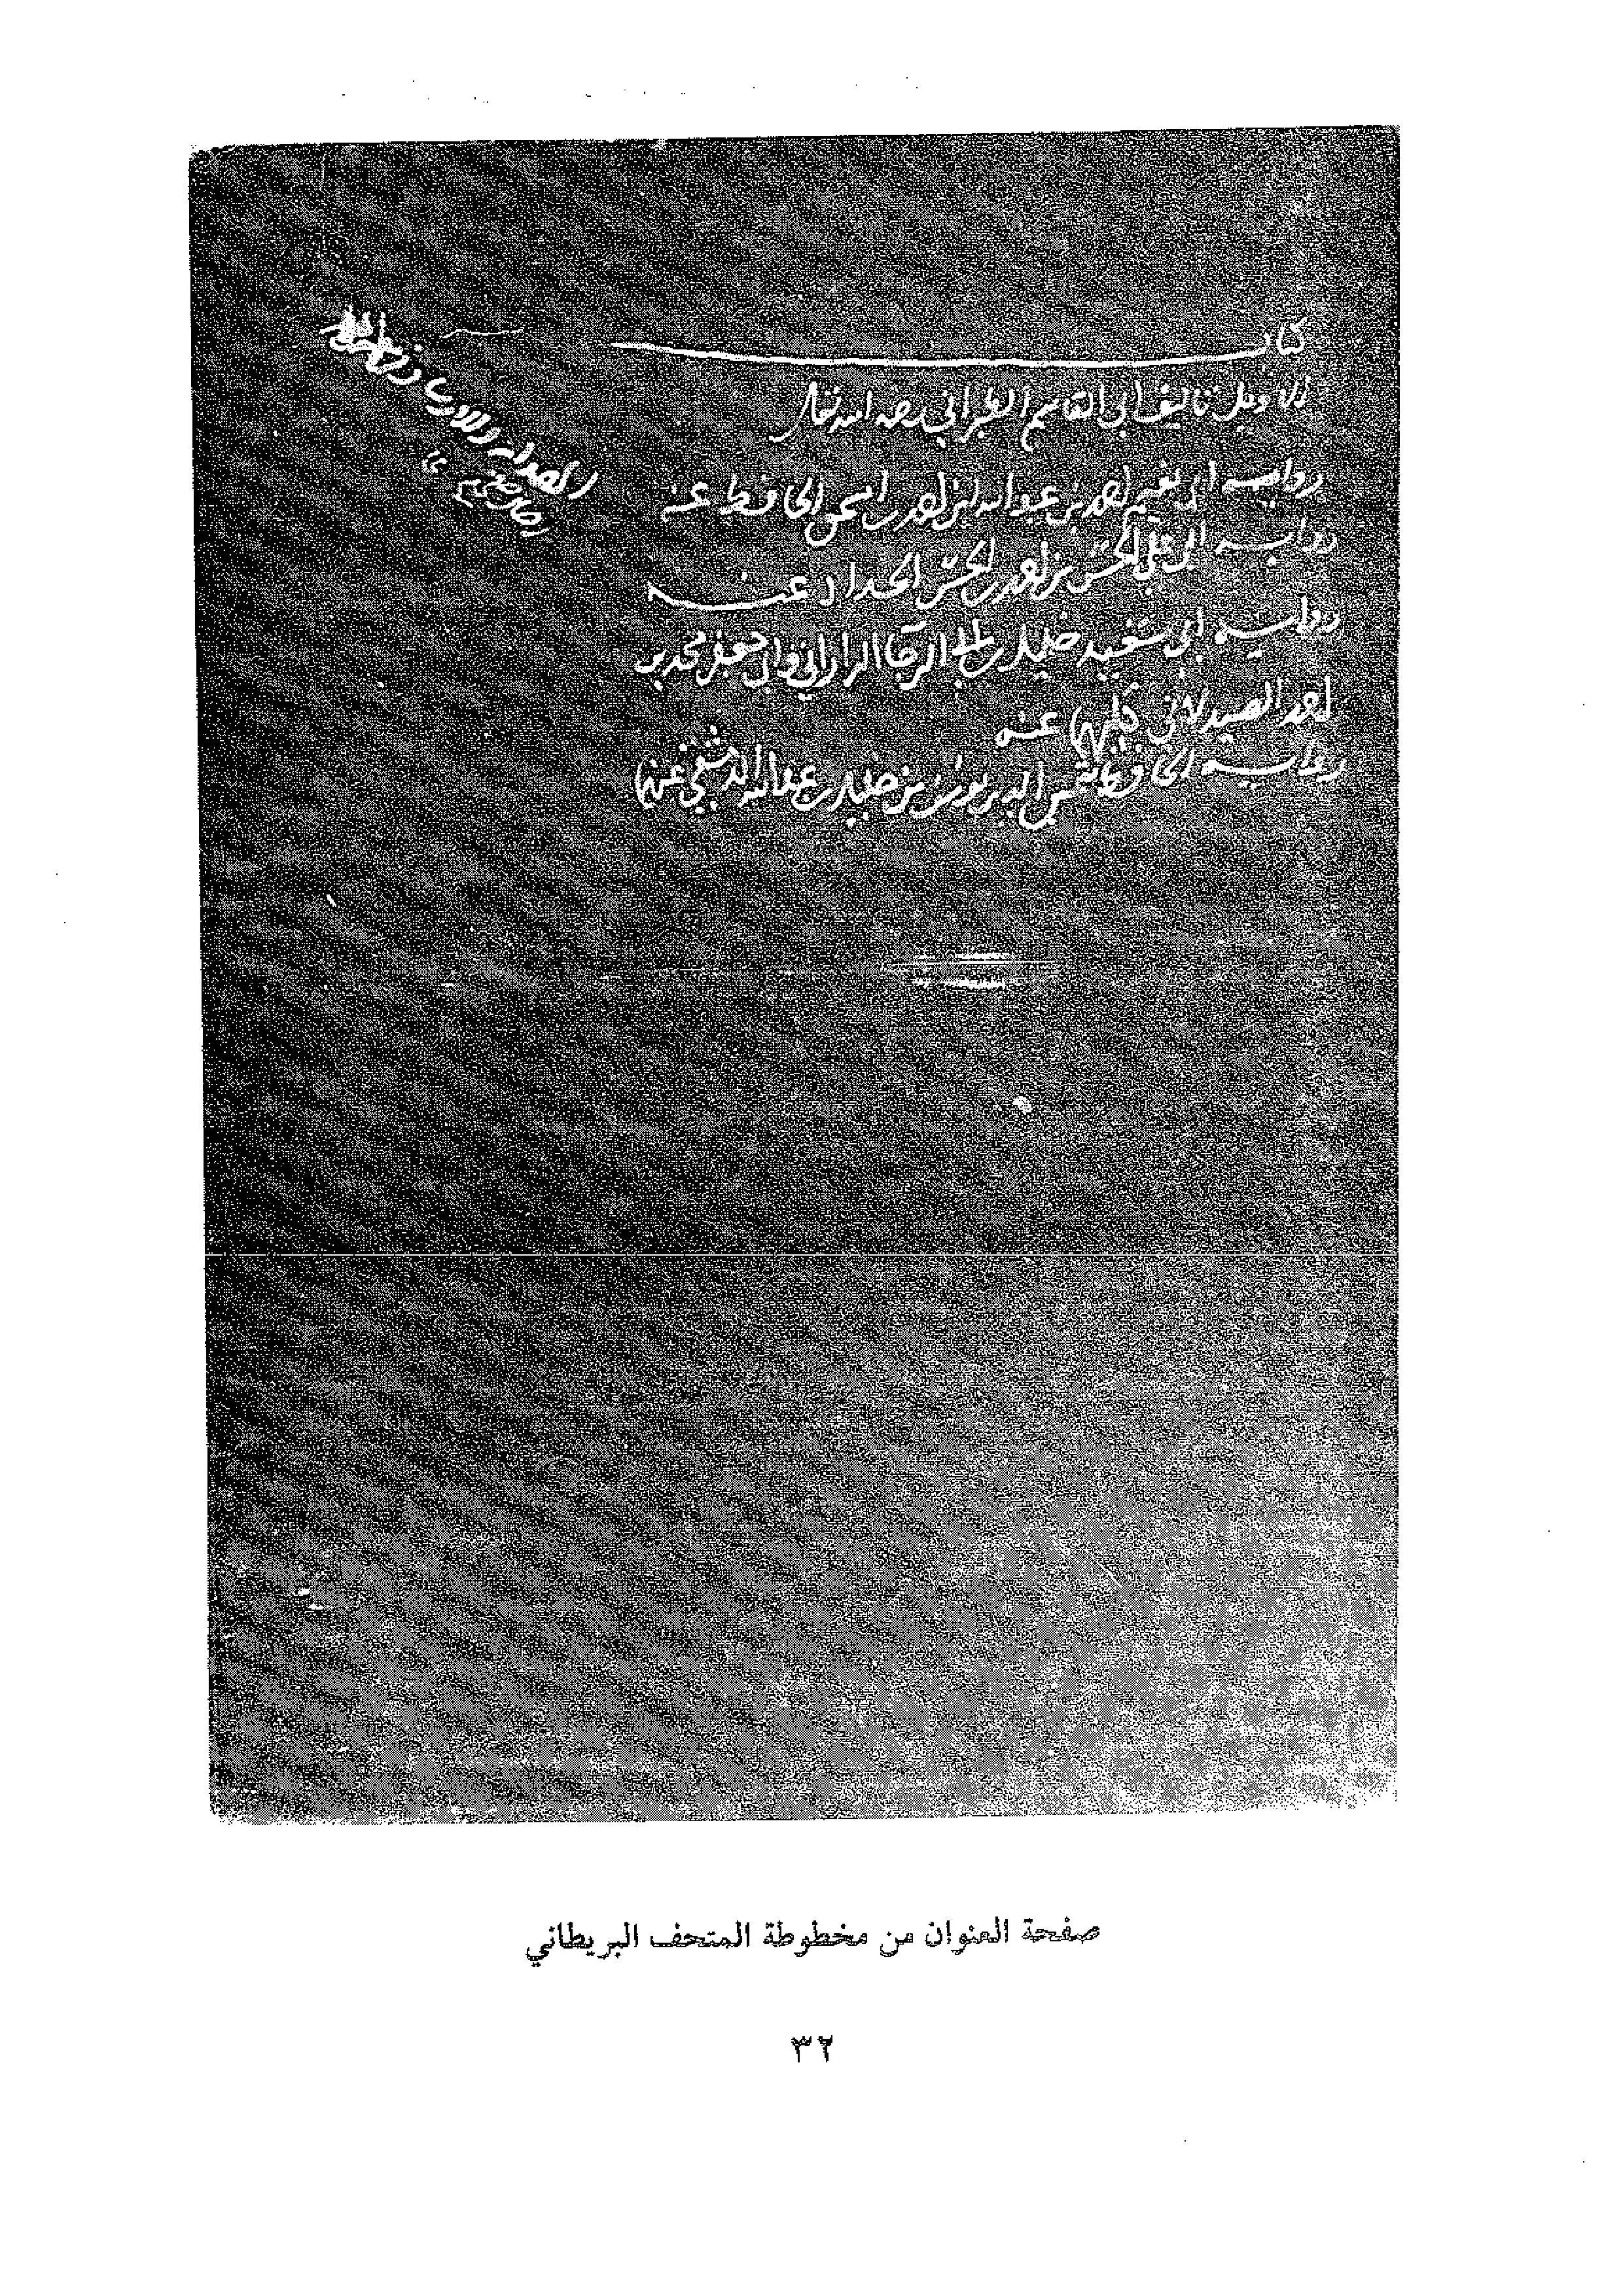 كتاب
الاوايل تاليف ابي القاسم الطبراني رحمه الله تعالى
رواية ابي نعيم احمد بن عبد الله بن احمد بن اسحق الحافظ عنه
رواية ابي علي الحسن بن احمد بن الحسن الحداد عنه
رواية ابي سعيد خليل بن ابي الرجا الراراني وابي جعفر محمد بن
احمد الصيدلاني كليهما عنه
رواية ابي الحجاج يوسف بن خليل بن عبد الله الدمشقي عنهما
صفحة العنوان من مخطوطة المتحف البريطاني
٣٢